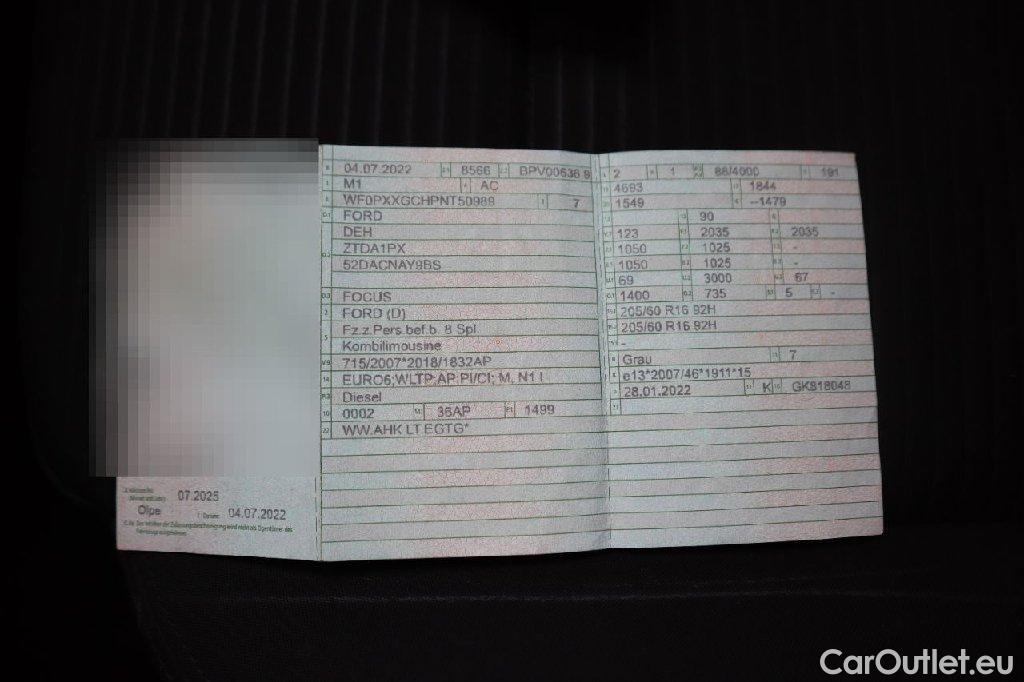 04.07.2022 8566 BPV00636 9
M1 AC
WF0PXXGCHPNT50989 7
FORD
DEH
ZTDA1PX
52DACNAY9BS
FOCUS
FORD (D)
Fz.z.Pers.bef.b. 8 Spl.
Kombilimousine
715/2007*2018/1832AP
EURO6;WLTP;AP;PI/CI; M, N1 I
Diesel
0002 36AP 1499
WW.AHK LT.EGTG*
2 1 88/4000 191
4693 1844
1549 --1479
90
123 2035 2035
1050 1025 -
1050 1025 -
69 3000 67
1400 735 5 -
205/60 R16 92H
205/60 R16 92H
-
Grau 7
e13*2007/46*1911*15
28.01.2022 K GK818048
07.2025
Olpe Datum: 04.07.2022
CarOutlet.eu